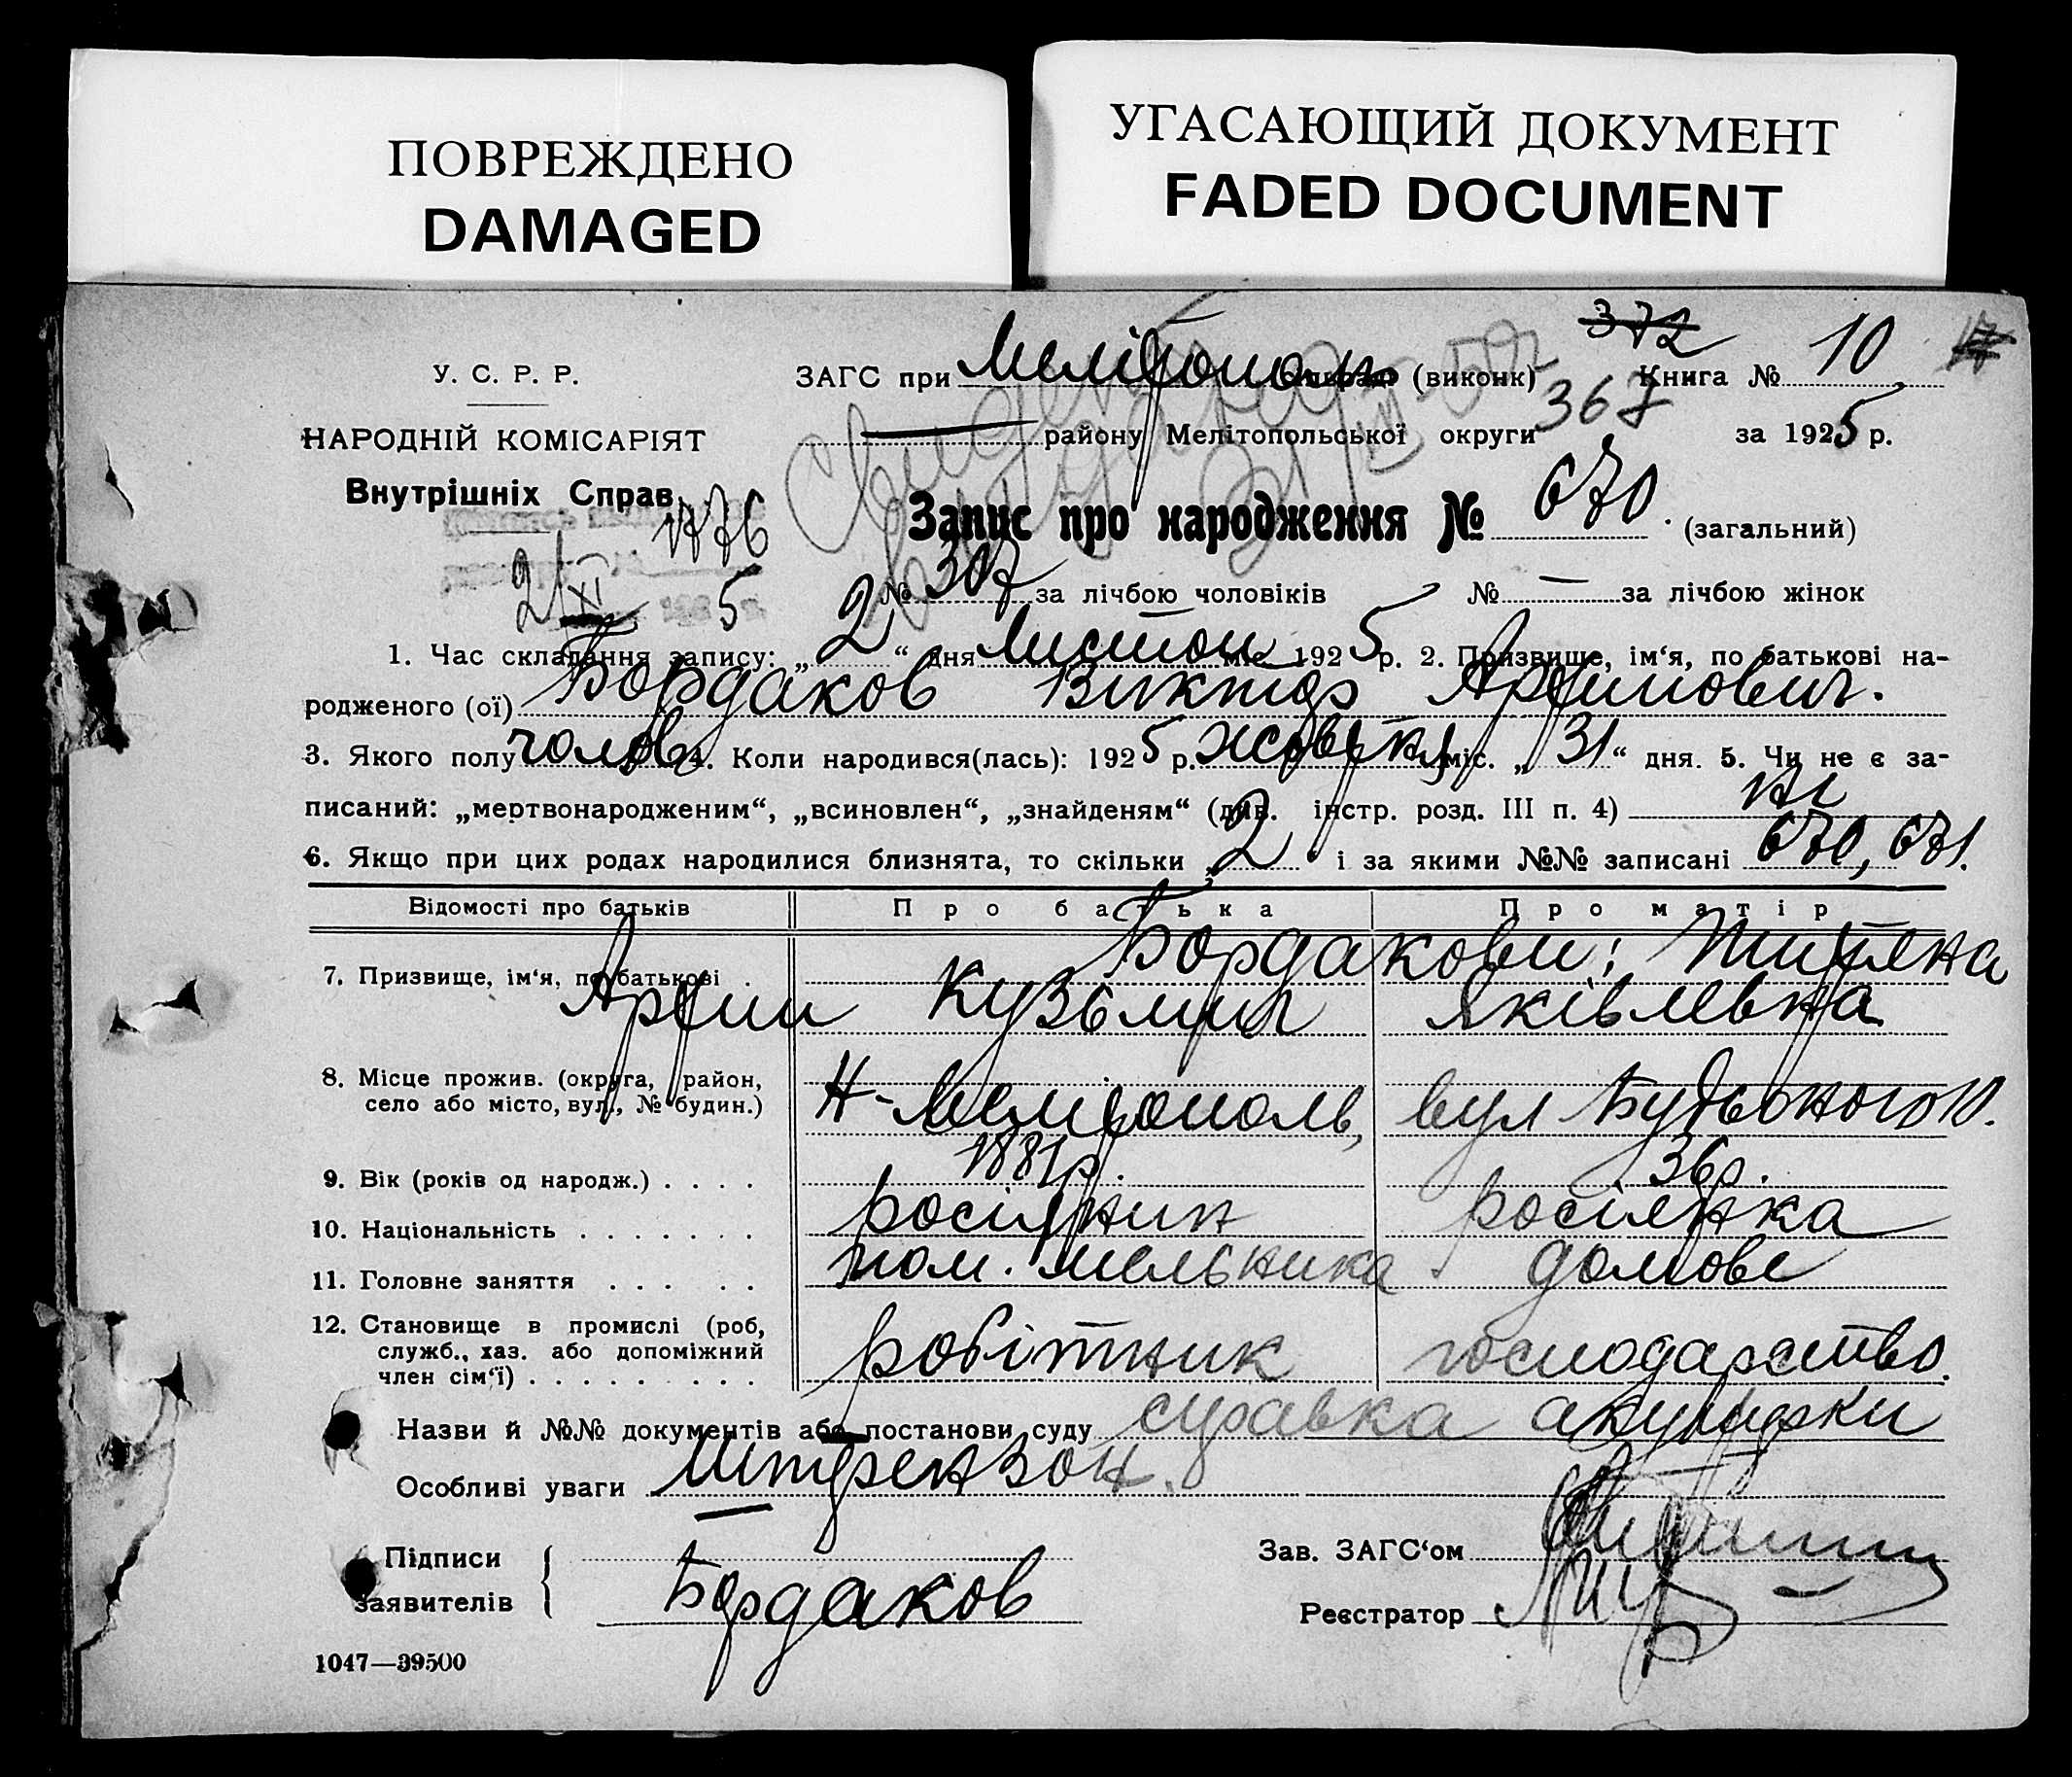 ПОВРЕЖДЕНО
DAMAGED
УГАСАЮЩИЙ ДОКУМЕНТ
FADED DOCUMENT
372
У. С. Р. Р.
ЗАГС при Мелітопол (виконк) Книга № 10
367
НАРОДНІЙ КОМІСАРІЯТ
— району Мелітопольської округи за 1925 р.
Внутрішніх Справ
1776
Запис про народження № 670. (загальний)
2/XI 5
№ 307 за лічбою чоловіків № — за лічбою жінок
1. Час складання запису: „2“ дня Листоп міс. 1925 р. 2. Призвище, ім‘я, по батькові на-
родженого (ої) Бордаков Виктор Артимович.
3. Якого полу чолов 4. Коли народився(лась): 1925 р. жовтня міс. „31“ дня. 5. Чи не є за-
писаний: „мертвонародженим“, „всиновлен“, „знайденям“ (див. інстр. розд. III п. 4) ні
6. Якщо при цих родах народилися близнята, то скільки 2 і за якими №№ записані 670, 671.
Відомості про батьків Про батька Про матір
Бордакови: Титяна
7. Призвище, ім‘я, по батькові
Артим Кузьмич Яківлевна
8. Місце прожив. (округа, район,
село або місто, вул., № будин.) Н-Мелітополь, вул Будьоного 10.
9. Вік (років од народж.) 1881 р. 36 р.
10. Національність росіянин росіянка
11. Головне заняття пом. мельника домове
12. Становище в промислі (роб,
служб., хаз. або допоміжний
член сім‘ї) робітник господарство.
Назви й №№ документів або постанови суду справка акушерки
Особливі уваги Штрензон.
Підписи
заявителів Бордаков
Зав. ЗАГС‘ом
Реєстратор
1047—39500